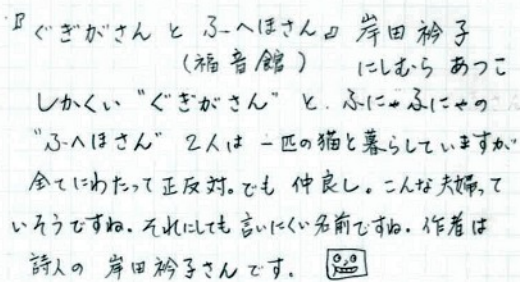 『ぐぎがさん と ふへほさん』 岸田衿子
(福音館) にしむら あつこ
しかくい "ぐぎがさん" と、ふにゃふにゃの
"ふへほさん" 2人は 一匹の猫と暮らしていますが
全てにわたって正反対。でも 仲良し。こんな夫婦って
いそうですね。それにしても 言いにくい名前ですね。作者は
詩人の 岸田衿子さんです。